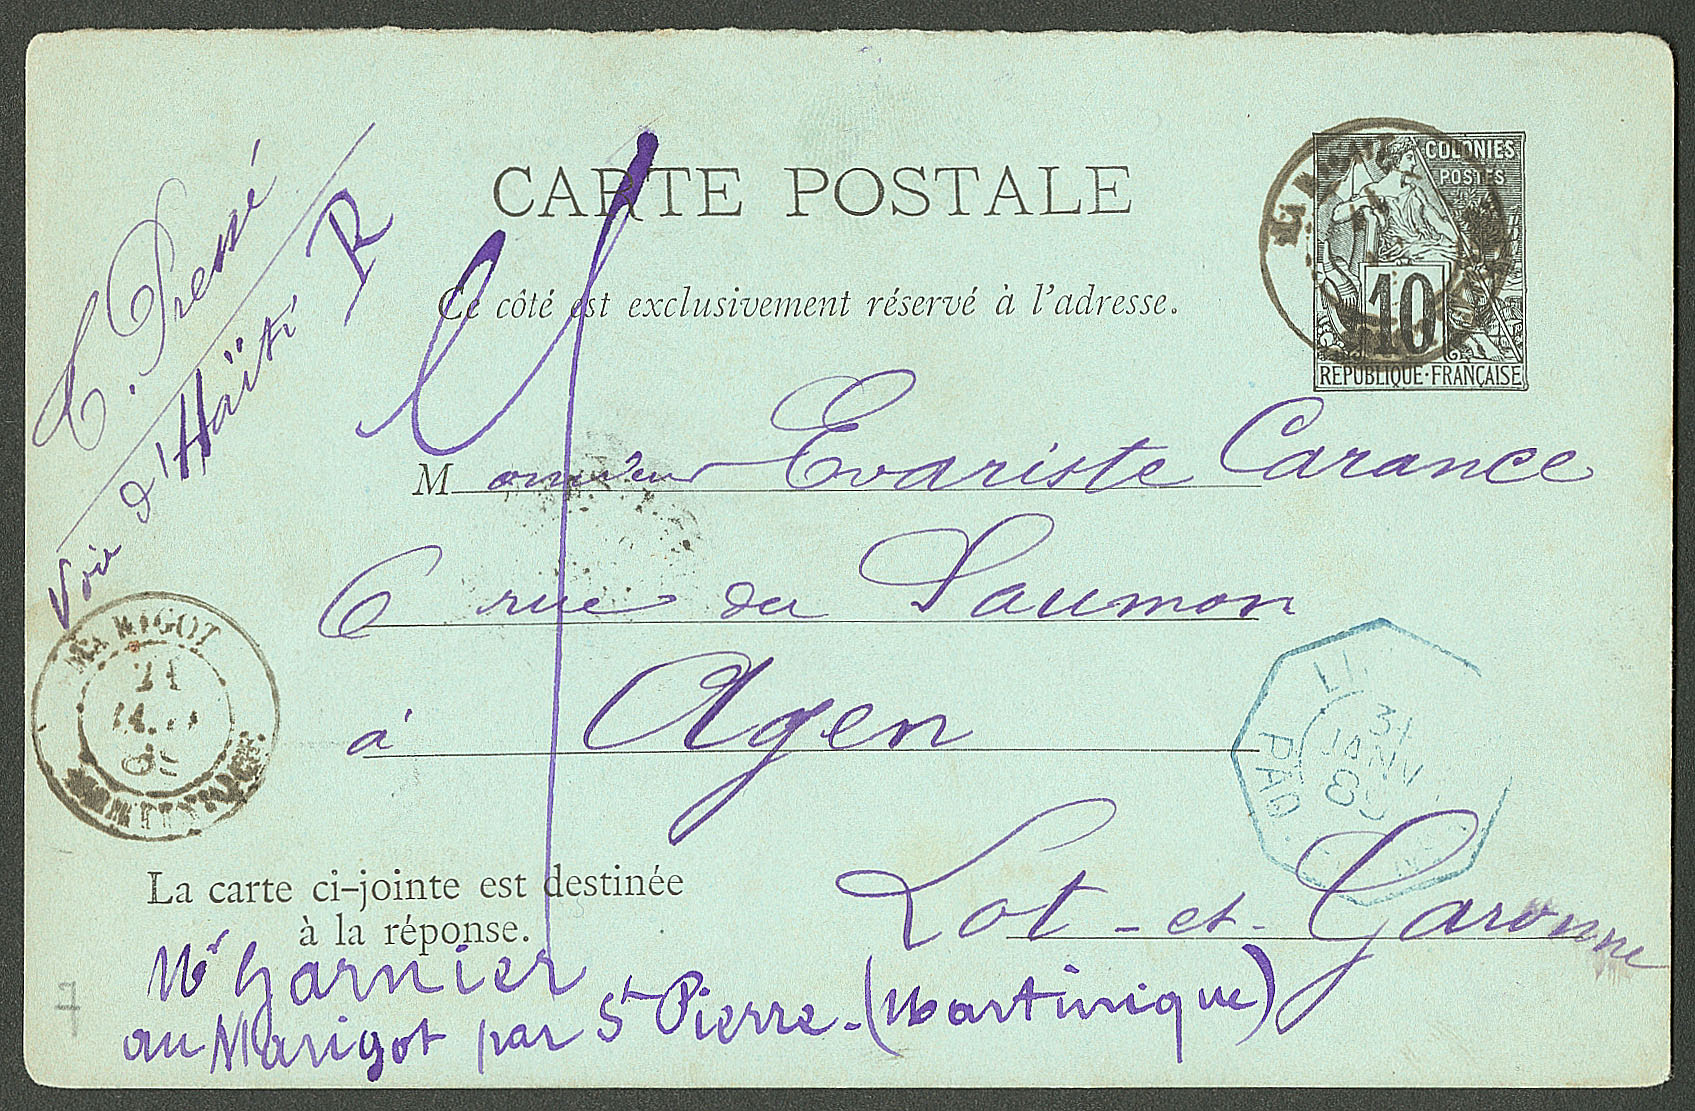 CARTE POSTALE
Ce côté est exclusivement réservé à l'adresse.
COLONIES
POSTES
10
REPUBLIQUE·FRANÇAISE
Voie d'Haïti
R
Monsieur Evariste Carance
6 rue du Saumon
à Agen
Lot-et-Garonne
MARIGOT
21
MARTINIQUE
LI
31
JANV
PAQ.
La carte ci-jointe est destinée
à la réponse.
Mr Garnier
au Marigot par St Pierre-(Martinique)